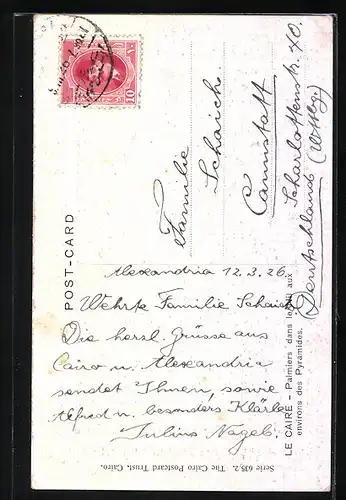 POST-CARD
Alexandria 12.3.26.
Wehrte Familie Schaich
Die herzl. Grüsse aus
Cairo u. Alexandria
sendet Ihnen, sowie
Alfred u. besonders Klärle
Julius Nagel.
Familie
Schaich
Cannstatt
Scharlottenstr. 40.
Deutschland (Wttbg)
LE CAIRE – Palmiers dans le aux
environs des Pyramides.
Serie 635/2. The Cairo Postcard Trust, Cairo.
10